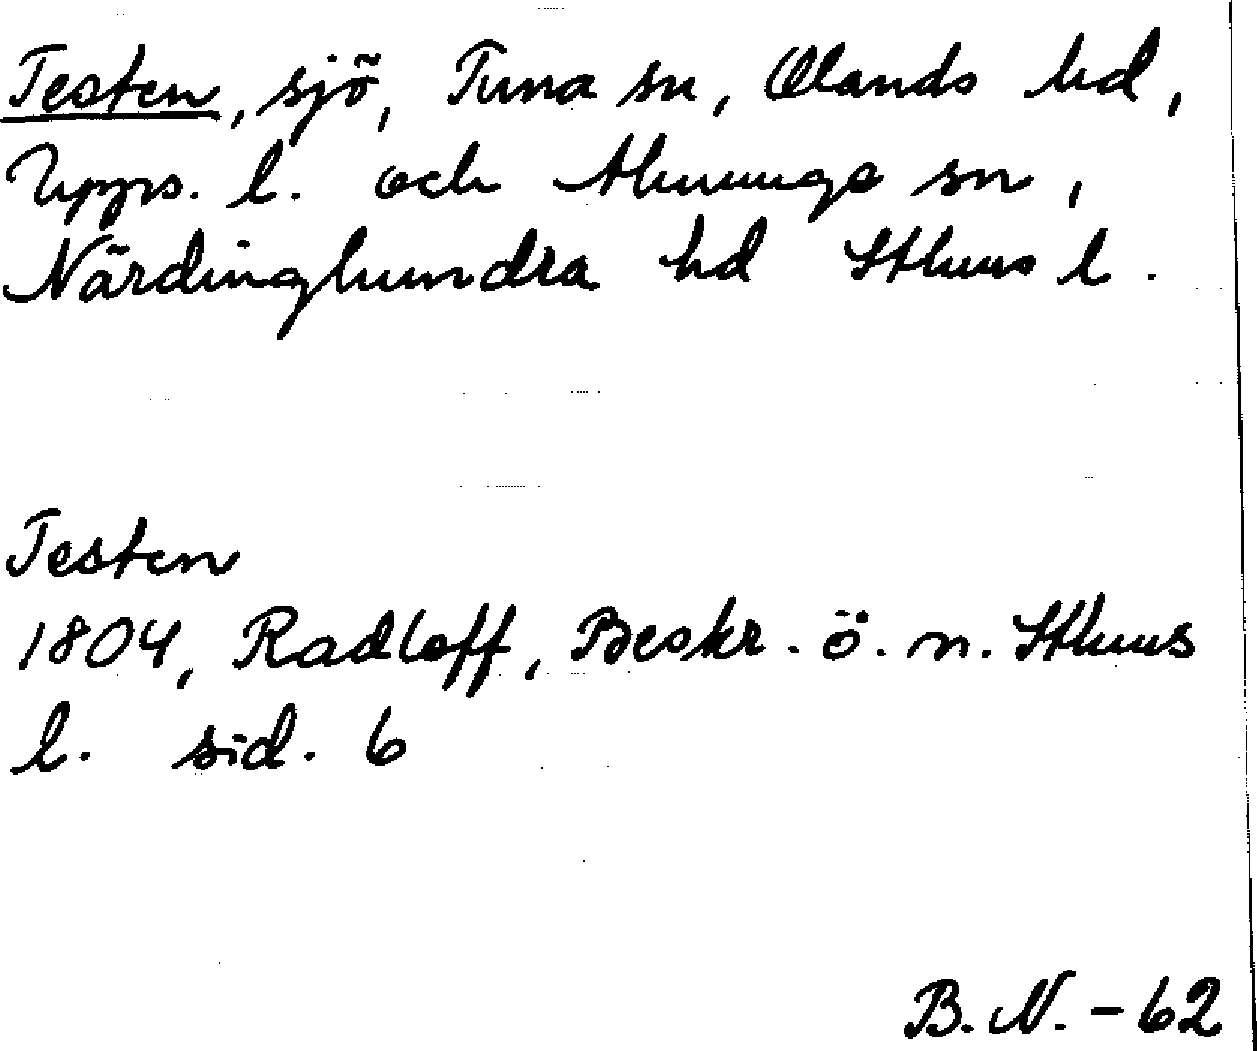 Testen, sjö, Tuna sn, Olands hd,
Upps. l. och Almunge sn,
Närdinghundra hd Sthlms l.
Testen
1804, Radloff, Beskr. ö. n. Sthlms
l. sid. 6
B.N. - 62